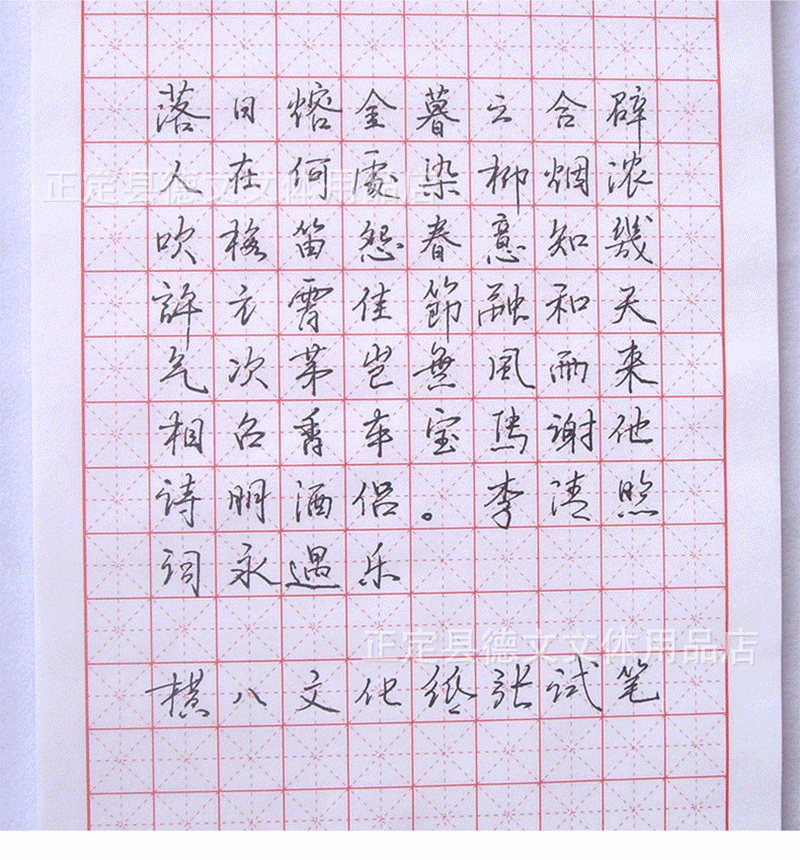 落日熔金暮云合辟
人在何處染柳烟浓
正定县德文文体用品店
吹梅笛怨春意知幾
許元霄佳節融和天
气次苐岂無風雨来
相召香车宝馬謝他
诗朋酒侣。李清照
词永遇乐
正定县德文文体用品店
横八文化纸张试笔